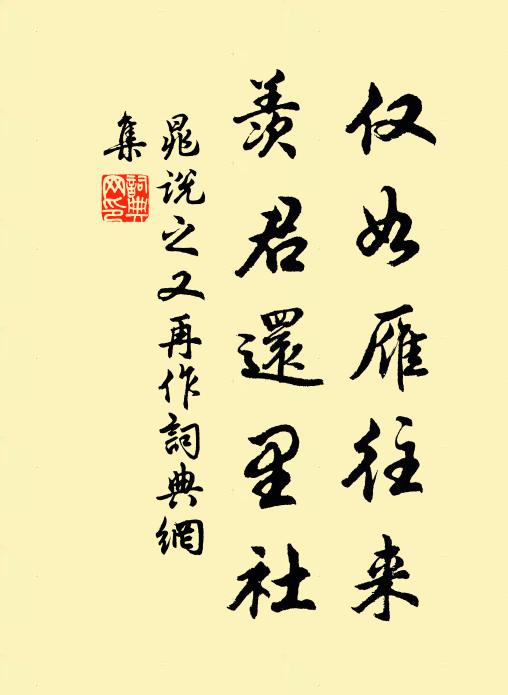 仅如雁往来
羨君還里社
晁说之又再作詞典網
集
詞典
网印